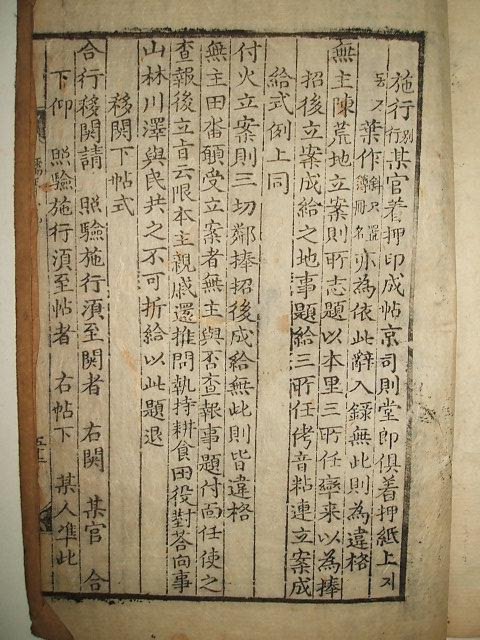 施行別行某官着押印成帖京司則堂郎俱着押紙上지
葉作斜只置簿冊名亦為依此辭入錄無此則為違格
無主陳荒地立案則所志題以本里三所任率来以為捧
招後立案成給之地事題給三所任侤音粘連立案成
給式例上同
付火立案則三切鄰捧招後成給無此則皆違格
無主田畓願受立案者無主與否查報事題付面任使之
查報後立旨云限本主親戚還推間執持耕食田役對荅向事
山林川澤與民共之不可折給以此題退
移関下帖式
合行移関請 照驗施行須至関者 右関 某官 合
下仰 照驗施行須至帖者 右帖下 某人准此